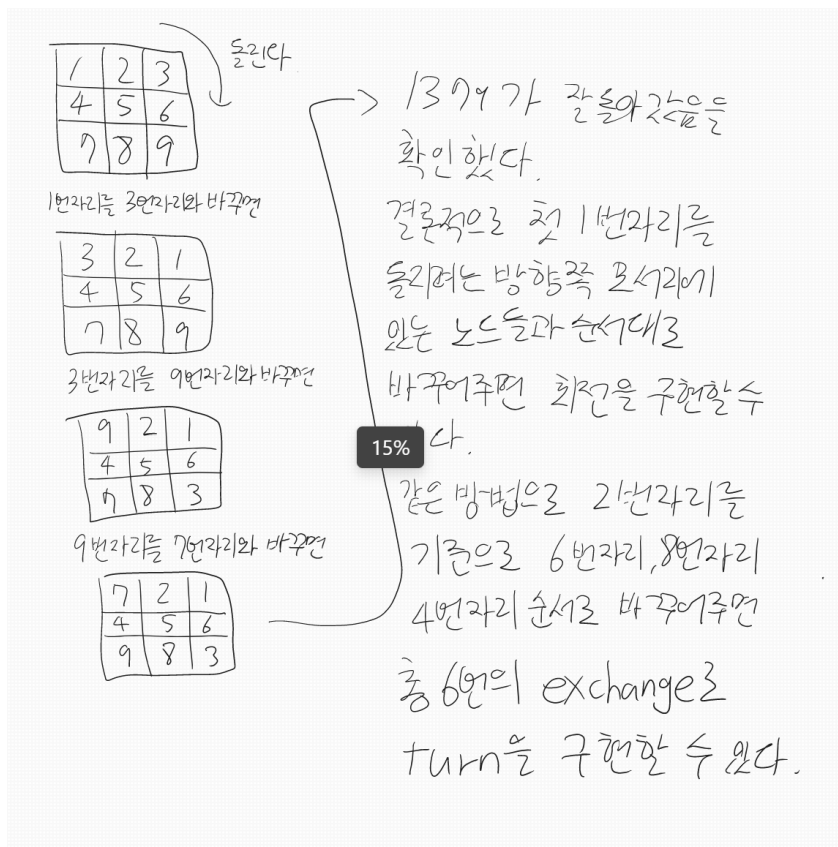 돌린다
1 2 3
4 5 6
7 8 9
1번자리를 3번자리와 바꾸면
3 2 1
4 5 6
7 8 9
3번자리를 9번자리와 바꾸면
9 2 1
4 5 6
7 8 3
9번자리를 7번자리와 바꾸면
7 2 1
4 5 6
9 8 3
1379가 잘 돌아갔음을
확인했다.
결론적으로 첫 1번자리를
돌리려는 방향쪽 모서리에
있는 노드들과 순서대로
바꾸어주면 회전을 구현할 수
다.
15%
같은 방법으로 2번자리를
기준으로 6번자리, 8번자리
4번자리 순서로 바꾸어주면
총 6번의 exchange로
turn을 구현할 수 있다.